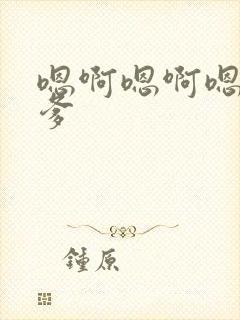 嗯啊嗯啊嗯
爹
鍾原